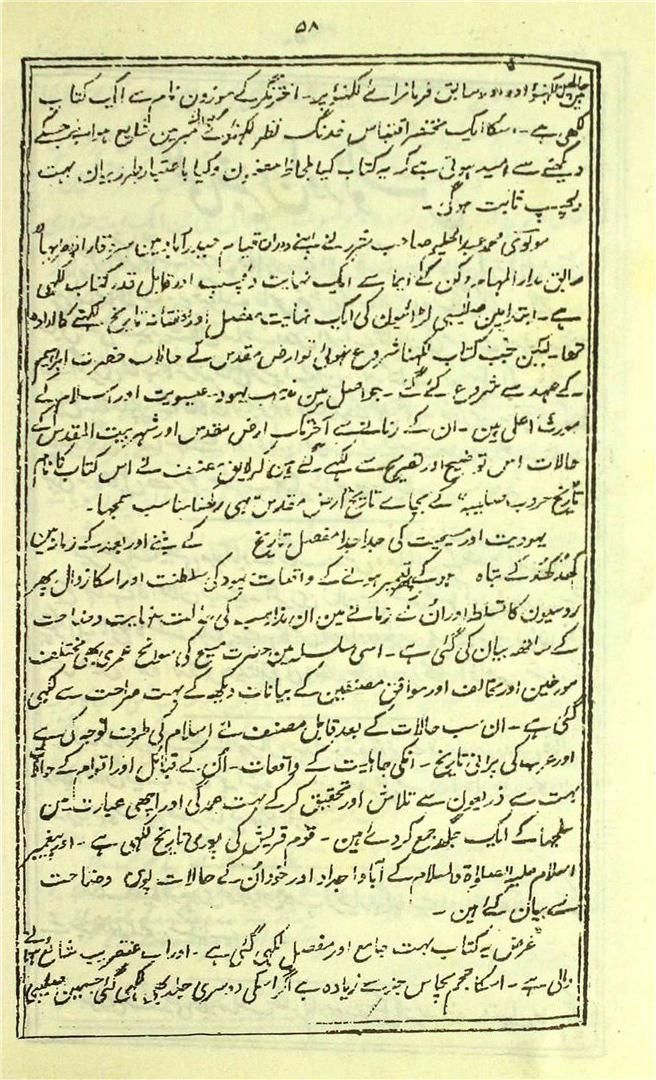 ۵۸
سابق فرمانرائے لکھنؤ پر۔ اخترنگر کے موزون نام سے ایک کتاب
لکھی ہے۔ اسکا ایک مختصر اقتباس خدنگ نظر لکھنؤ کے نمبر مین شایع ہوا ہے جسکے
دیکھنے سے امید ہوتی ہے کہ یہ کتاب کیا بلحاظ مضمون وکیا باعتبار طرز بیان بہت
دلچسپ ثابت ہوگی۔
مولوی محمد عبدالحلیم صاحب شرر نے اپنے دوران قیام حیدرآباد مین سر وقارالامرا بہادر
سابق مدارالمہام دکن کے ایما سے ایک نہایت دلچسپ اور قابل قدر کتاب لکھی
ہے۔ ابتدا مین صلیبی لڑائیون کی ایک نہایت مفصل اور تاریخ لکھنے کا ارادہ
تھا۔ لیکن جب کتاب لکھنا شروع ہوئی تو ارض مقدس کے حالات حضرت ابراہیم
کے عہد سے شروع کئے گئے۔ جو اصل مین مذہب یہود۔ عیسویت اور اسلام کے
مورث اعلی ہین۔ ان کے زمانے سے آخر تک ارض مقدس اور شہر بیت المقدس کے
حالات اس توضیح اور تصریح سے لکھے گئے ہین کہ لایق مصنف نے اس کتاب کا نام
تاریخ حروب صلیبیہ“ کے بجاے تاریخ ارض مقدس ہی رکھنا مناسب سمجھا۔
یہودیت اور مسیحیت کی جدا جدا مفصل تاریخ کے بننے اور بعد کے زمانہ مین
کے تباہ ہونے کے واقعات یہود کی سلطنت اور اسکا زوال پھر
رومیون کا تسلط اور ان کے زمانے مین ان مذاہب کی حالت نہایت وضاحت
کے ساتھ بیان کی گئی ہے۔ اسی سلسلہ مین حضرت مسیح کی سوانح عمری بھی مختلف
مورخین اور مخالف اور موافق مصنفین کے بیانات دیکھ کے بہت صراحت سے لکھی
گئی ہے۔ ان سب حالات کے بعد قابل مصنف نے اسلام کی طرف توجہ کی ہے
اور عرب کی پرانی تاریخ۔ انکی جاہلیت کے واقعات۔ ان کے قبائل اور اقوام کے حالات
بہت سے ذریعون سے تلاش اور تحقیق کرکے بہت عمدگی اور اچھی عبارت مین
سلجھا کے ایک جگہ جمع کردے ہین۔ قوم قریش کی پوری تاریخ لکھی ہے۔ اور پیغمبر
اسلام علیہ الصلوٰۃ والسلام کے آباواجداد اور خود ان کے حالات پوری وضاحت
سے بیان کئے ہین۔
غرض یہ کتاب بہت جامع اور مفصل لکھی گئی ہے۔ اور اب عنقریب شائع ہونے
والی ہے۔ اسکا حجم پچاس جز سے زیادہ ہے اگر اسکی دوسری جلد بھی لکھی گئی جسمین صلیبی